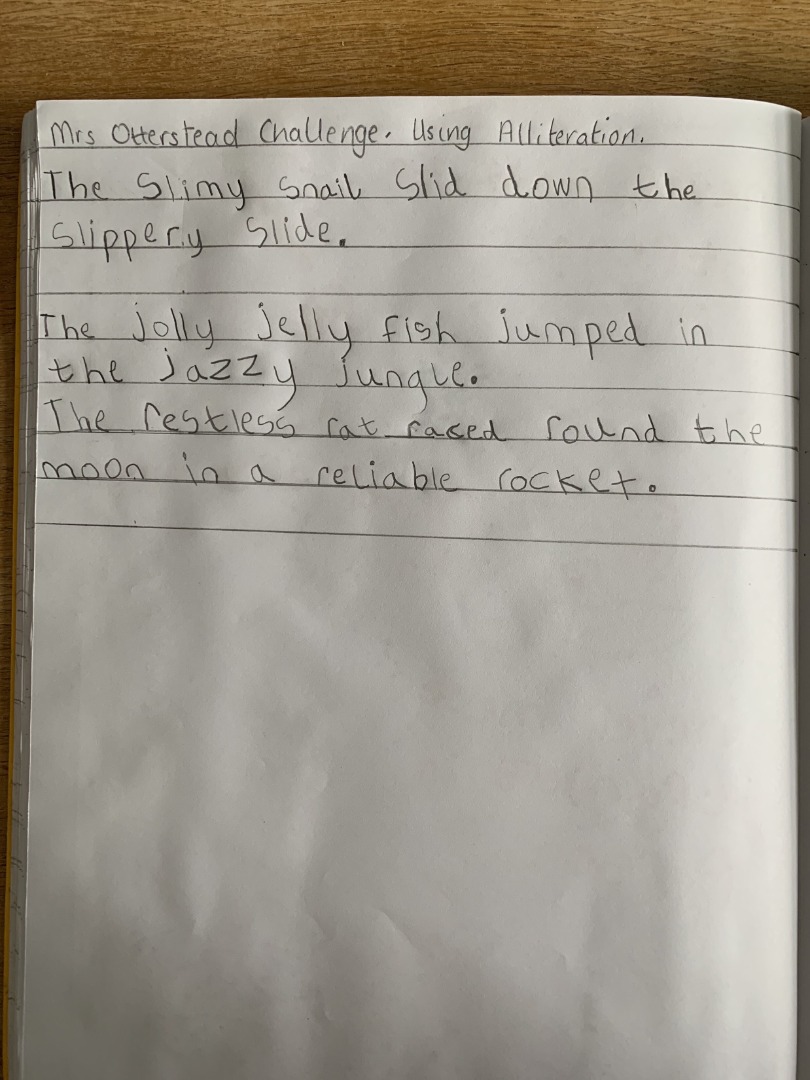 Mrs Otterstead Challenge. Using Alliteration.
The Slimy Snail Slid down the
Slippery Slide.
The jolly jelly fish jumped in
the jazzy jungle.
The restless rat raced round the
moon in a reliable rocket.